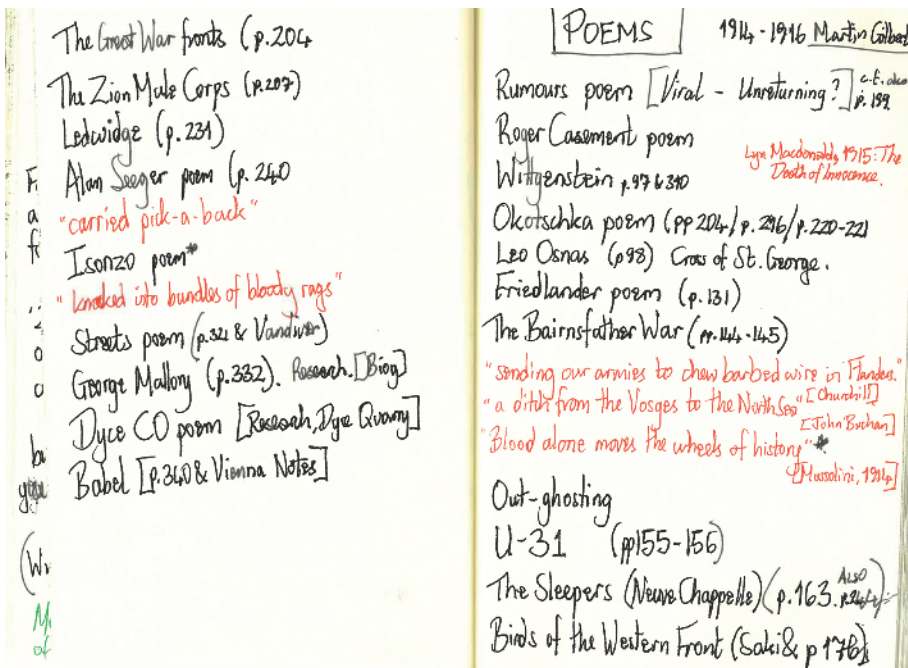 The Great War fronts (p.204
The Zion Mule Corps (p.207)
Ledwidge (p.231)
Alan Seeger poem (p.240
"carried pick-a-back"
Isonzo poem*
"knocked into bundles of bloody rags"
Streets poem (p.321 & Vandiver)
George Mallory (p.332). Research. [Biog]
Dyce CO poem [Research, Dyce Quarry]
Babel [p.340 & Vienna Notes]
POEMS
1914-1916 Martin Gilbert
Rumours poem [Viral - Unreturning?] c.f. also p.199
Roger Casement poem
Lyn Macdonald, 1915: The
Death of Innocence.
Wittgenstein p.97 & 310
Okotschka poem (pp 204/p.216/p.220-221
Leo Osnas (p98) Cross of St. George.
Friedlander poem (p.131)
The Bairnsfather War (pp.144-145)
"sending our armies to chew barbed wire in Flanders."
[Churchill]
"a ditch from the Vosges to the North Sea"
[John Buchan]
"Blood alone moves the wheels of history"*
[Mussolini, 1914]
Out-ghosting
U-31 (pp155-156)
The Sleepers (Neuve Chappelle) (p.163. ALSO
Birds of the Western Front (Saki & p 176)